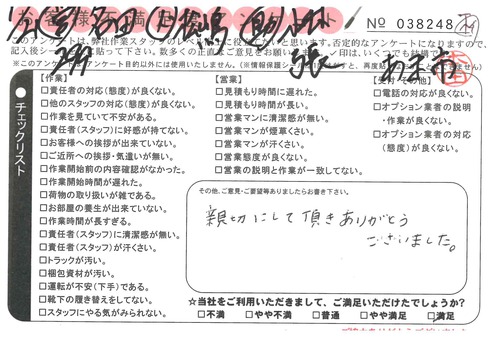 お客様満足
No 038248
このアンケートは、弊社作業スタッフのレベル
※このアンケートは、アンケート目的以外には使用いたしません。
チェックリスト
【作業】
□責任者の対応(態度)が良くない。
□他のスタッフの対応(態度)が良くない。
□作業を見ていて不安がある。
□責任者(スタッフ)に好感が持てない。
□お客様への挨拶が出来ていない。
□ご近所への挨拶・気遣いが無い。
□作業開始前の内容確認がなかった。
□作業開始時間が遅れた。
□荷物の取り扱いが雑である。
□お部屋の養生が出来ていない。
□作業時間が長すぎる。
□責任者(スタッフ)に清潔感が無い。
□責任者(スタッフ)が汗くさい。
□トラックが汚い。
□梱包資材が汚い。
□運転が不安(下手)である。
□靴下の履き替えをしてない。
□スタッフにやる気がみられない。
【営業】
□見積もり時間に遅れた。
□見積もり時間が長い。
□営業マンに清潔感が無い。
□営業マンが煙草くさい。
□営業マンが汗くさい。
□営業態度が良くない。
□営業の説明と作業が一致してない。
□電話の対応が良くない。
□オプション業者の説明
・作業が良くない。
□オプション業者の対応
(態度)が良くない。
その他、ご意見・ご要望等ありましたらお書き下さい。
親切にして頂きありがとう
ございました。
☆当社をご利用いただきまして、ご満足いただけたでしょうか?
□不満 □やや不満 □普通 □やや満足 □満足